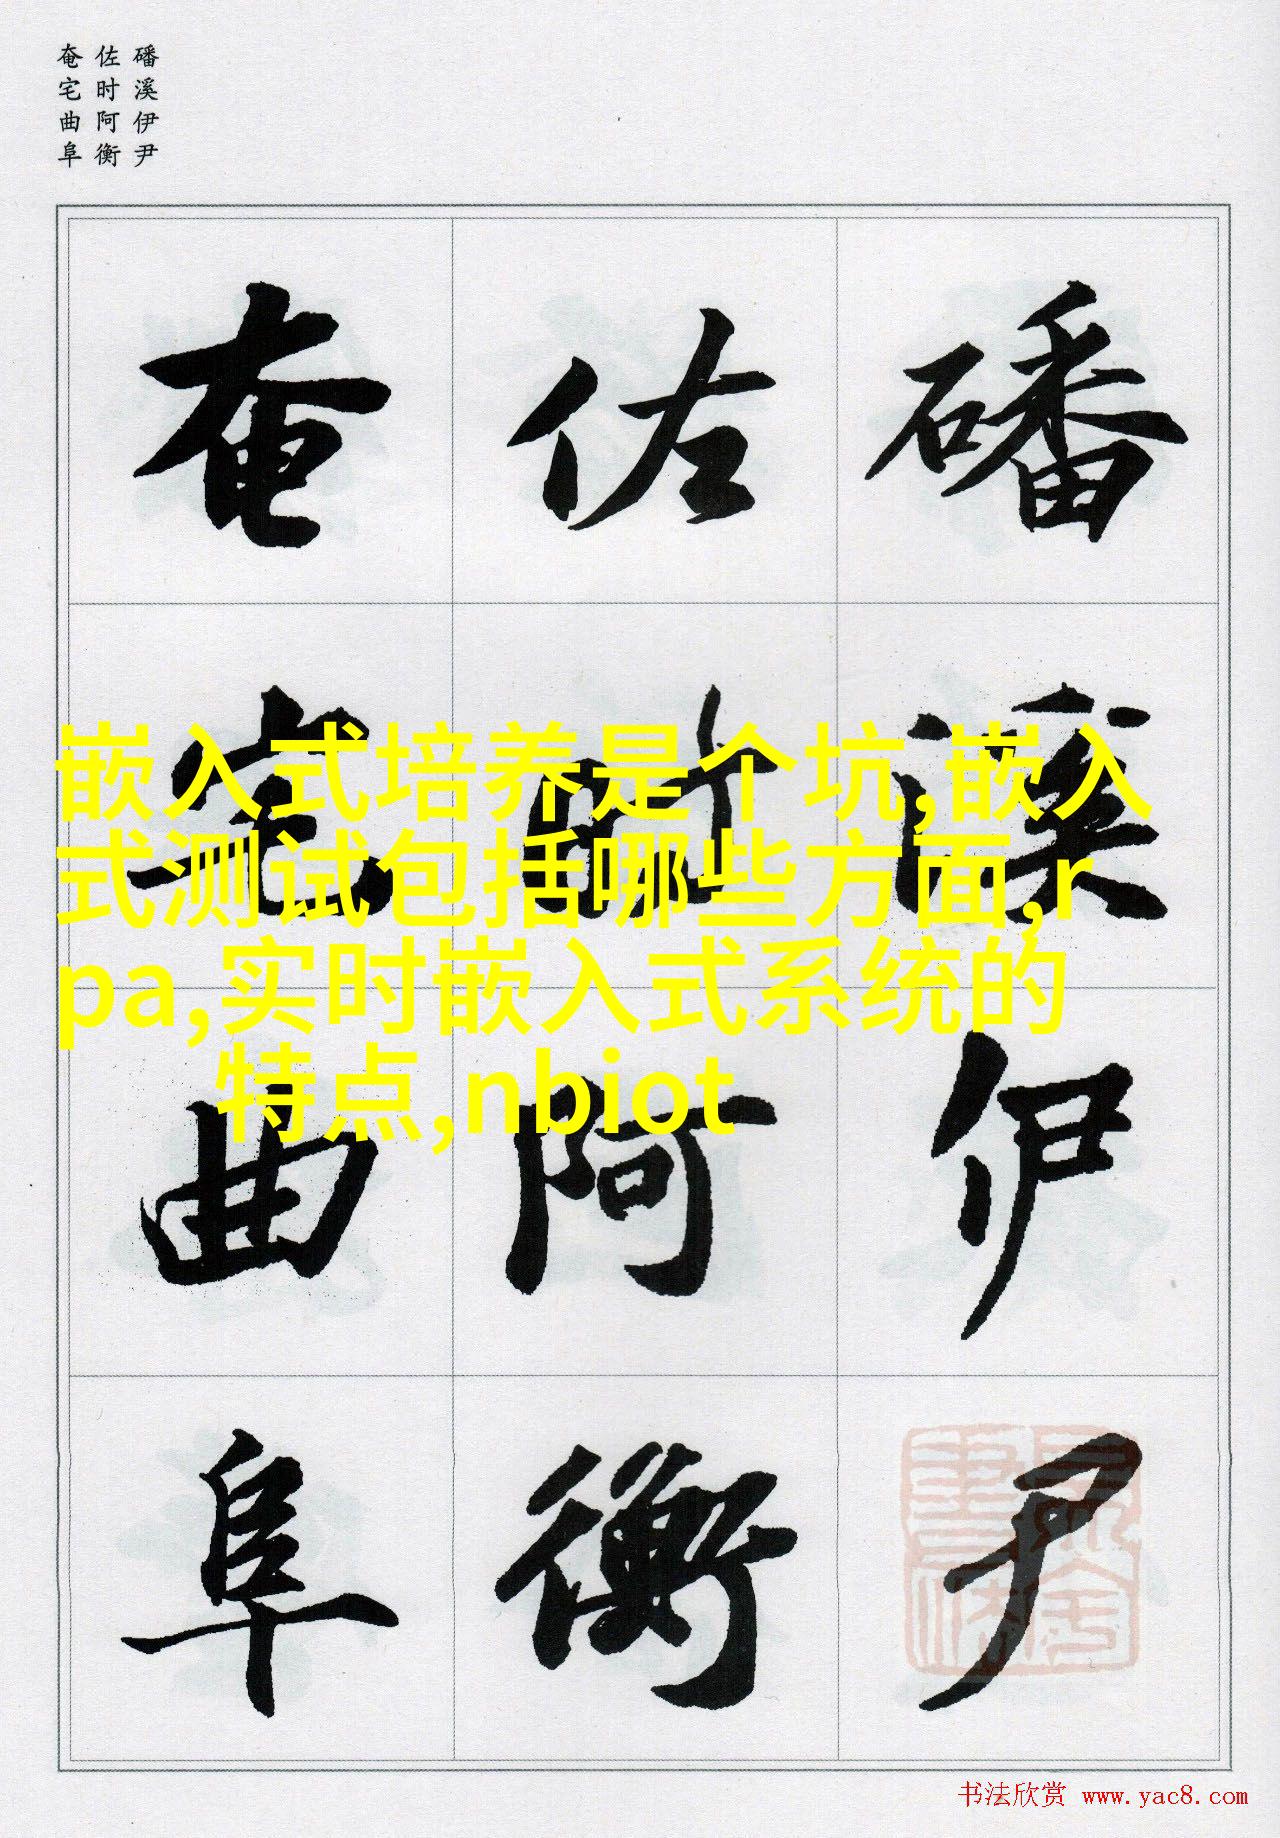 磻溪伊尹
佐时阿衡
奄宅曲阜
磻溪伊尹
佐时阿衡
奄宅曲阜
嵌入式培养是个坑,嵌入
式测试包括哪些方面,r
pa,实时嵌入式系统的
特点,nbiot
书法欣赏 www.yac8.com